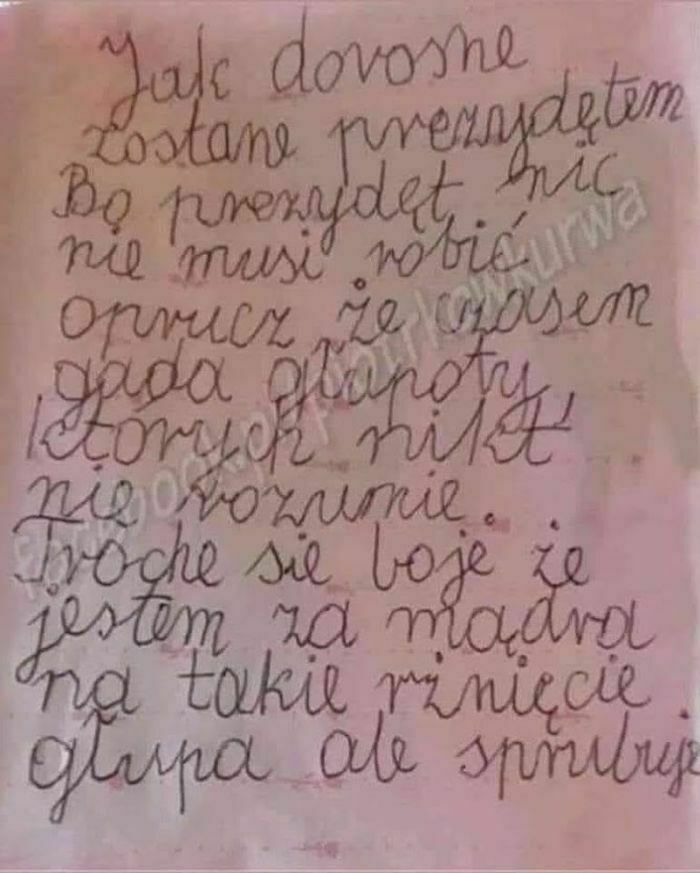 Jak dorosne
zostane prezydętem
Bo prezydęt nic
nie musi robić
oprucz że czasem
gada głupoty,
których nikt
nie rozumie.
Troche sie boje że
jestem za mądra
na takie rżnięcie
głupa ale sprubuje